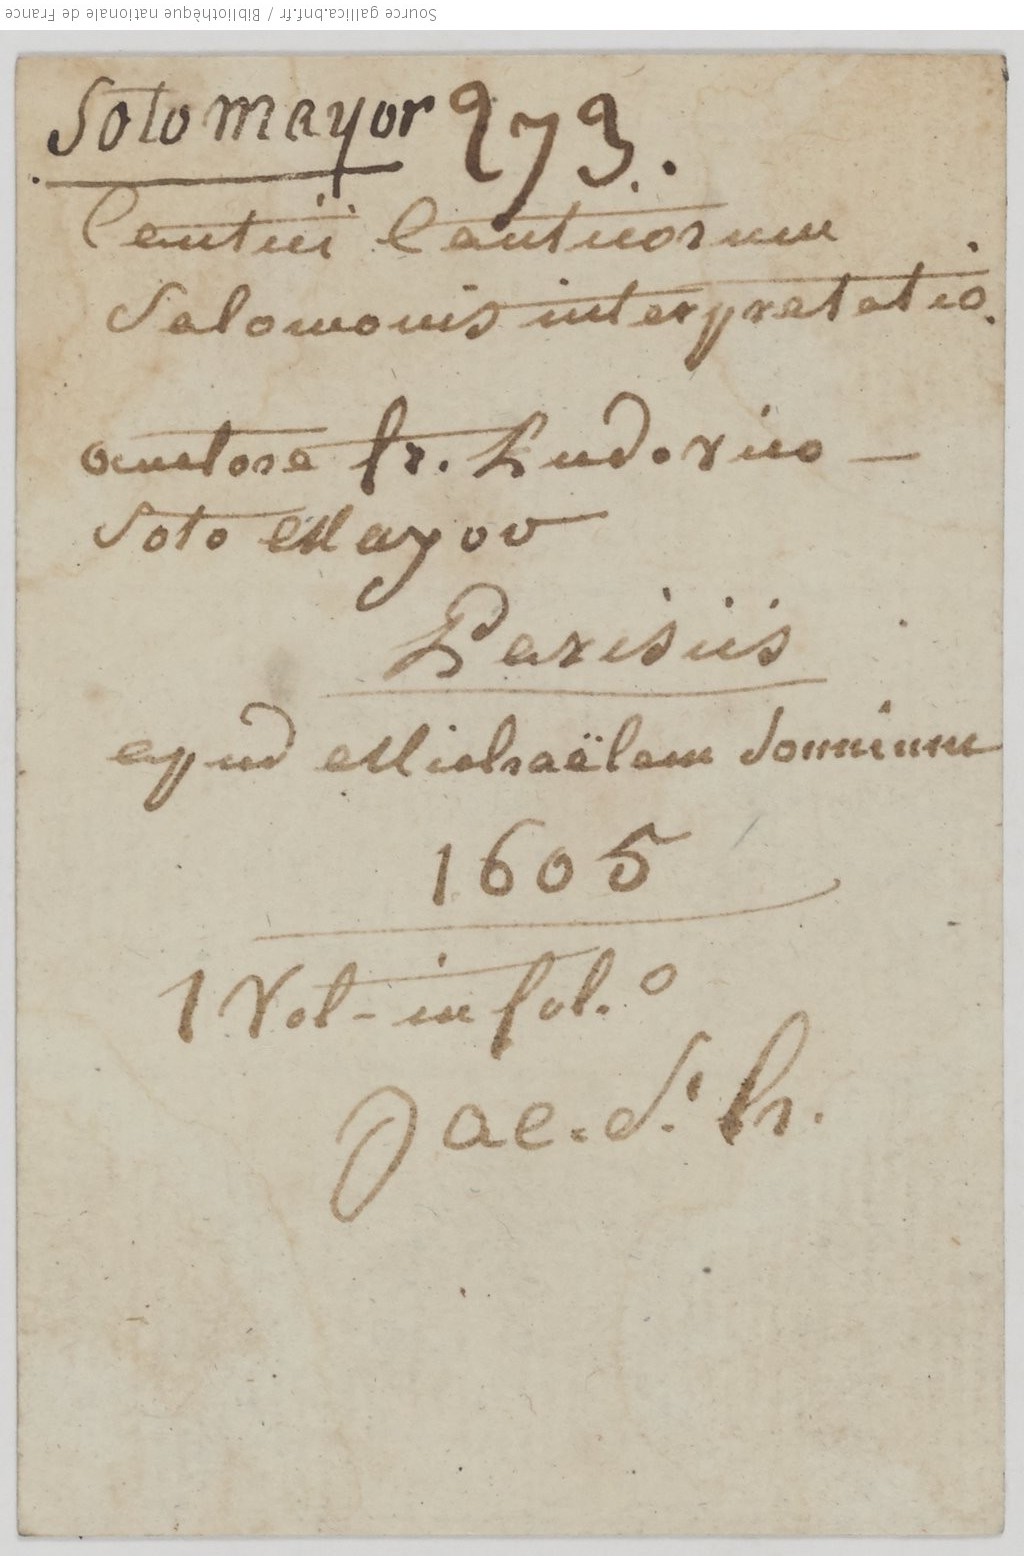 Source gallica.bnf.fr / Bibliothèque nationale de France
Soto mayor 273.
Cantici Canticorum
Salomonis interpretatio.
auctore fr. Ludovico —
Soto Mayor
Parisiis
apud Michaëlem Sonnium
1605
1 Vol - in fol.°
Jac. St. h.